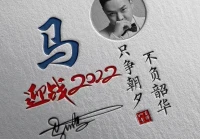 马
迎战2022
不负韶华
只争朝夕